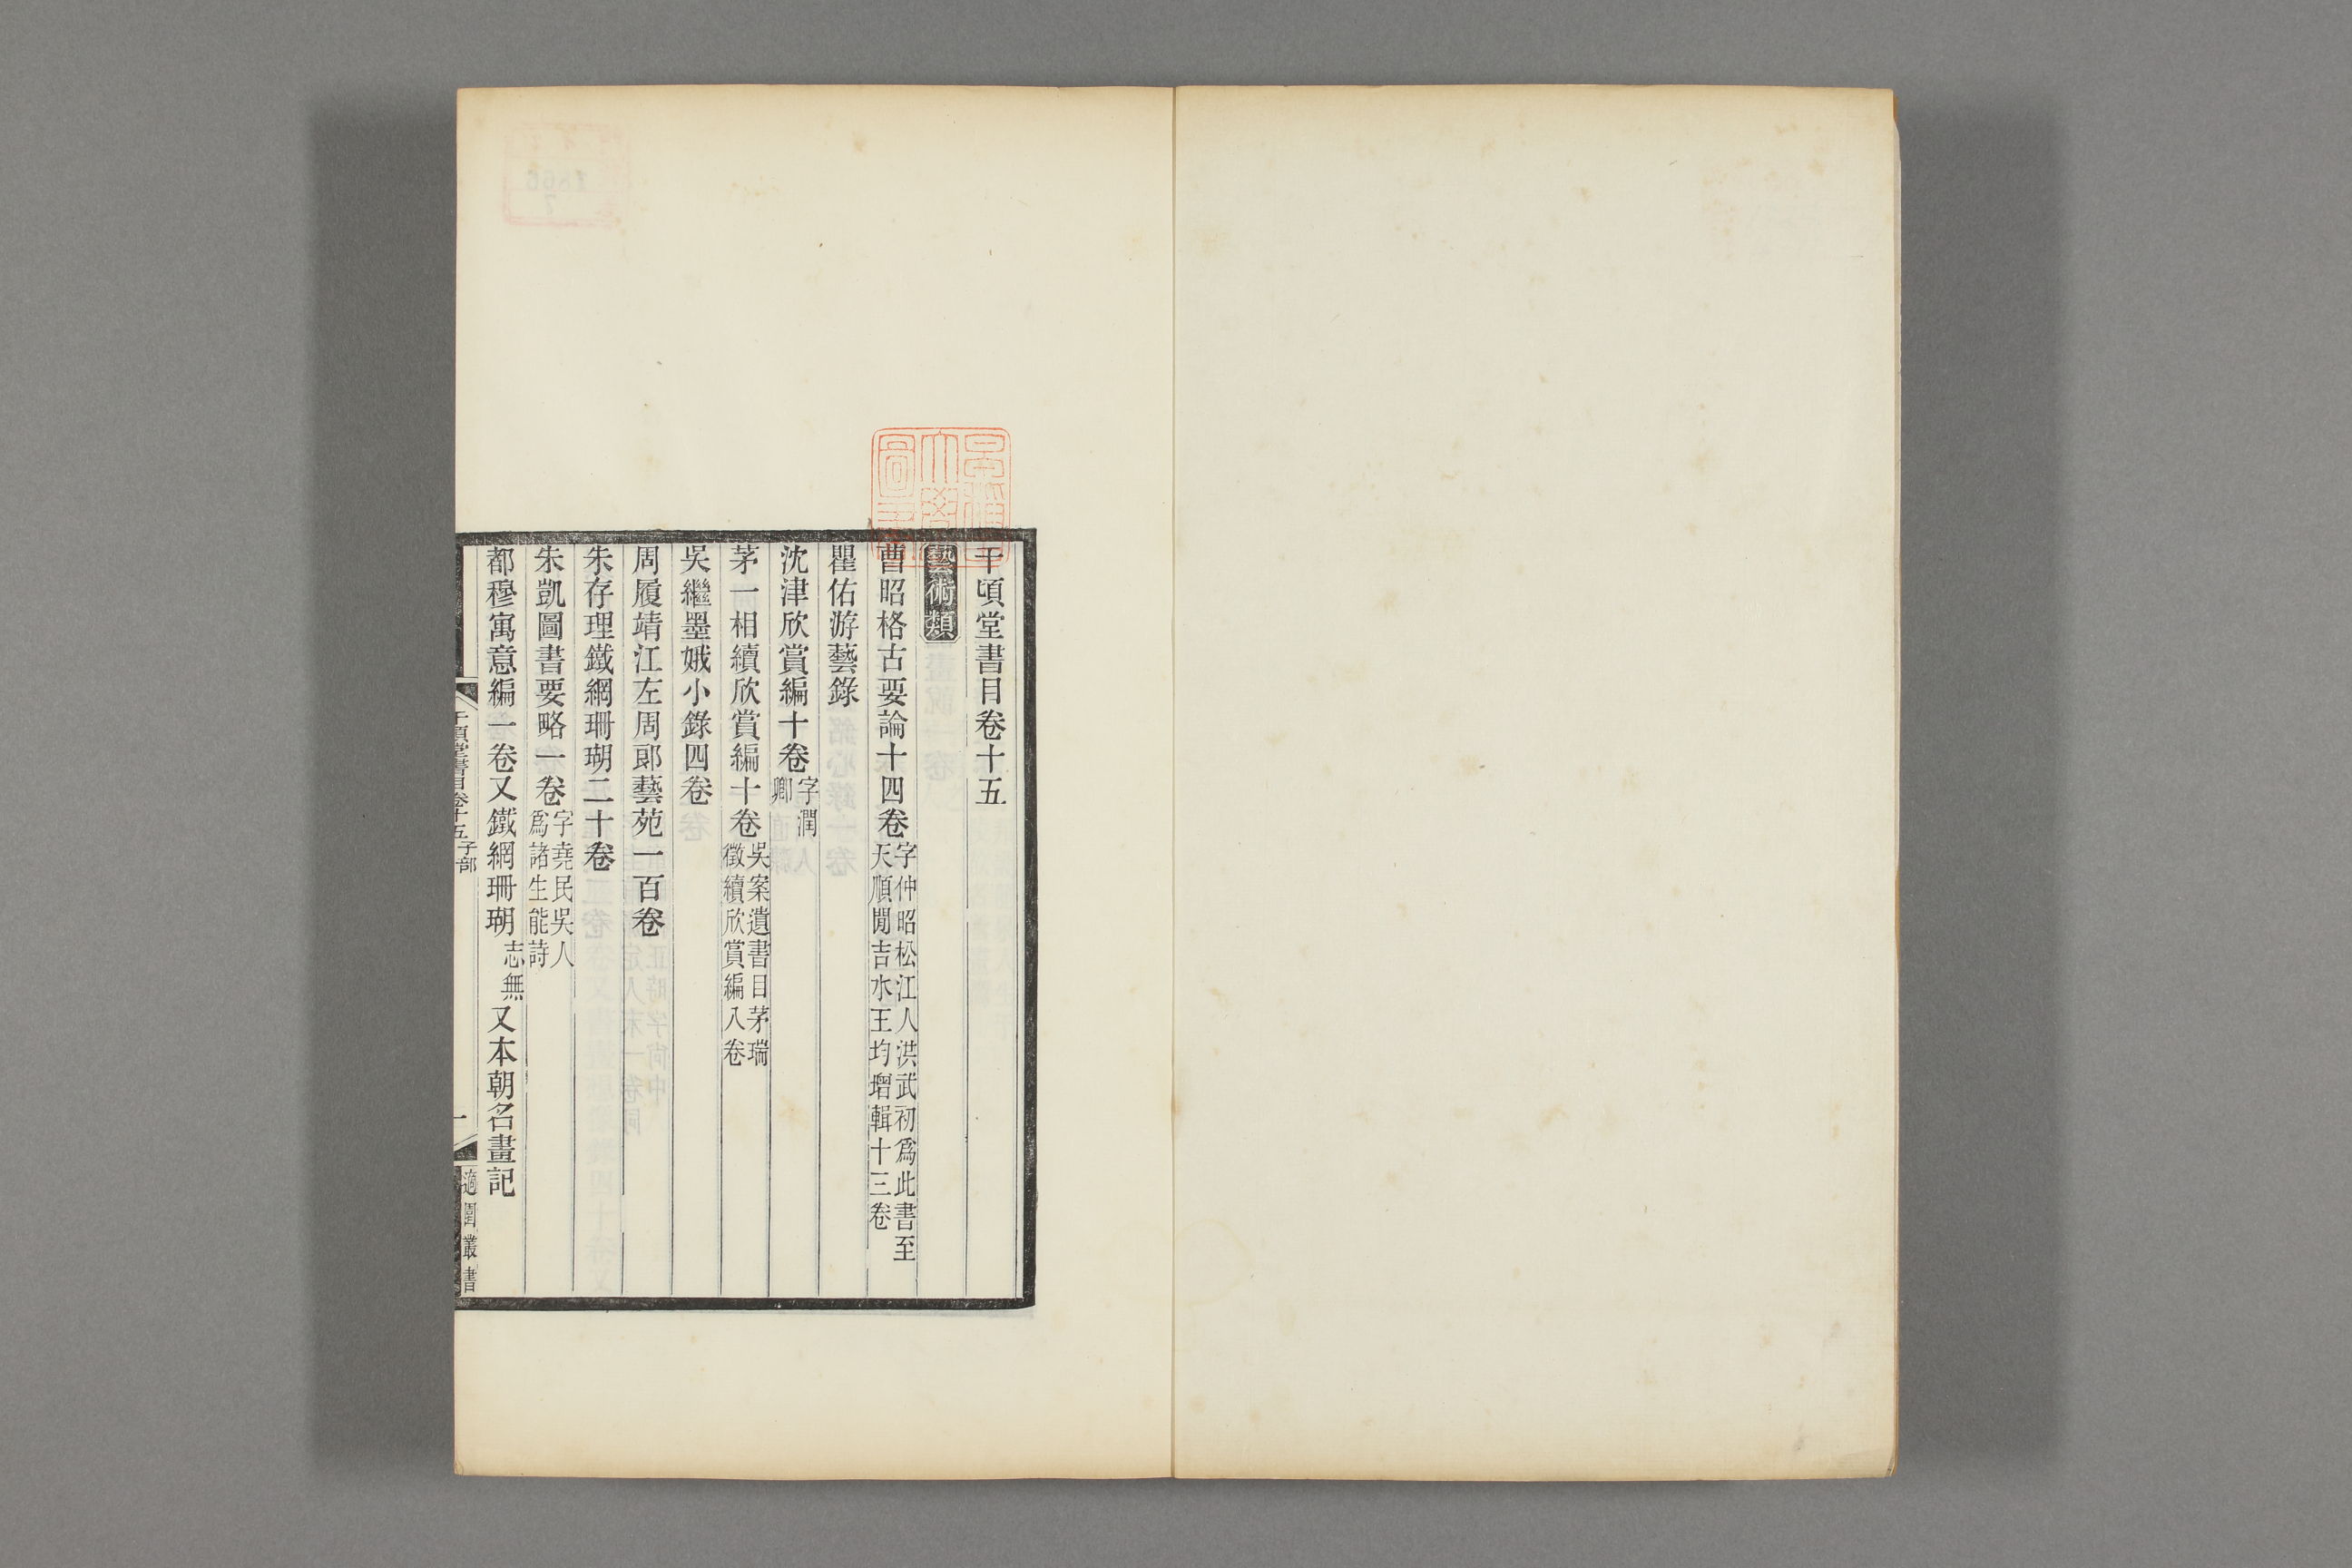 千頃堂書目卷十五
藝術類
曹昭格古要論十四卷字仲昭松江人洪武初爲此書至天順閒吉水王均增輯十三卷
瞿佑游藝錄
沈津欣賞編十卷字潤卿
茅一相續欣賞編十卷吳案遺書目茅瑞徵續欣賞編八卷
吳繼墨娥小錄四卷
周履靖江左周郞藝苑一百卷
朱存理鐵網珊瑚二十卷
朱凱圖書要略一卷字堯民吳人爲諸生能詩
都穆寓意編一卷又鐵網珊瑚志無又本朝名畫記
千頃堂書目卷十五子部
一
適園叢書